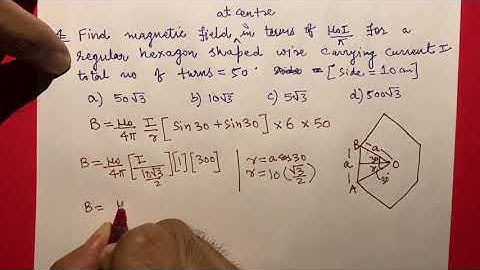 at centre
4. Find magnetic field, in terms of μ0I/π for a
regular hexagon shaped wire carrying current I
total no of turns = 50. [side = 10cm]
a) 50√3 b) 10√3 c) 5√3 d) 500√3
B = μ0/4π I/r [sin30 + sin30] × 6 × 50
B = μ0/4π [I/(10√3/2)] [1] [300]
r = a cos30
r = 10 (√3/2)
B =
B
a
a
O
r
A